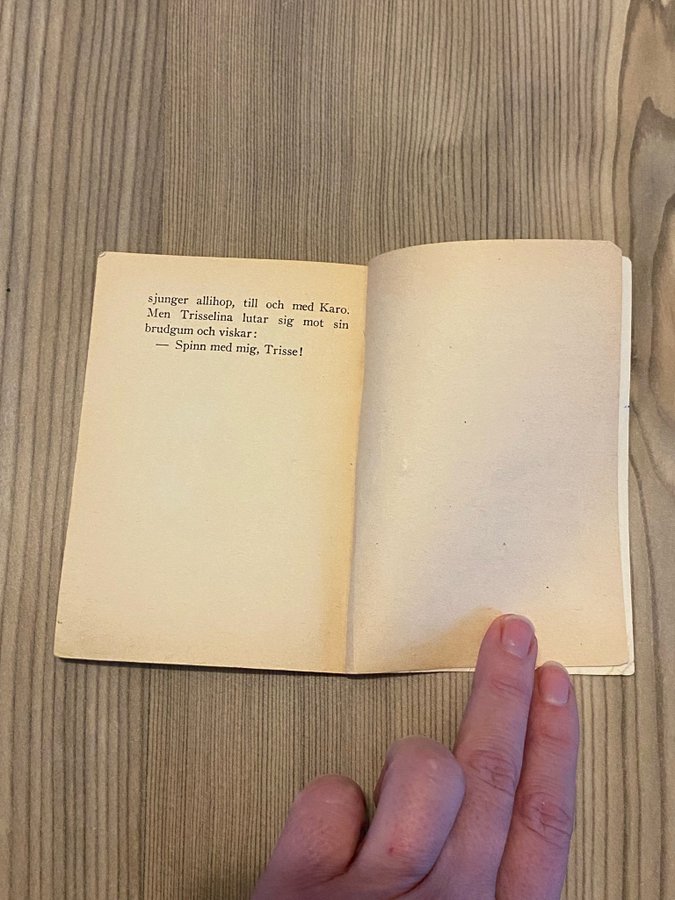 sjunger allihop, till och med Karo.
Men Trisselina lutar sig mot sin
brudgum och viskar:
— Spinn med mig, Trisse!